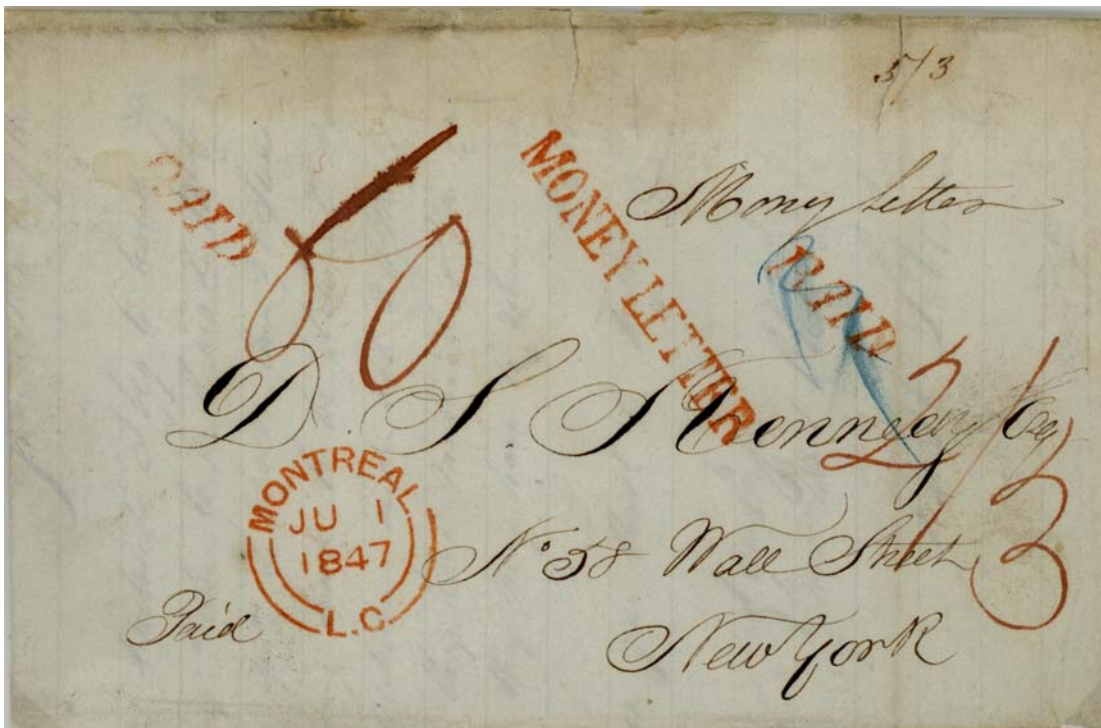 5/3
PAID
MONEY LETTER
Money Letter
PAID
2/3
D. S. Kennedy Esq
MONTREAL
JU 1
1847
L.C.
No 58 Wall Street
Paid
New York